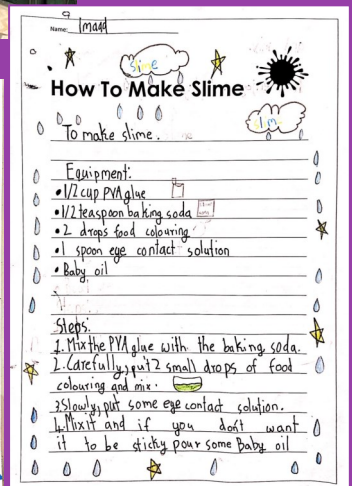 Name: Imaad
slime
How To Make Slime
slime
To make slime.
Equipment:
• 1/2 cup PVA glue
• 1/2 teaspoon baking soda
• 2 drops food colouring
• 1 spoon eye contact solution
• Baby oil
Steps:
1. Mix the PVA glue with the baking soda.
2. Carefully, put 2 small drops of food
colouring and mix.
3. Slowly, put some eye contact solution.
4. Mix it and if you don't want
it to be sticky pour some Baby oil